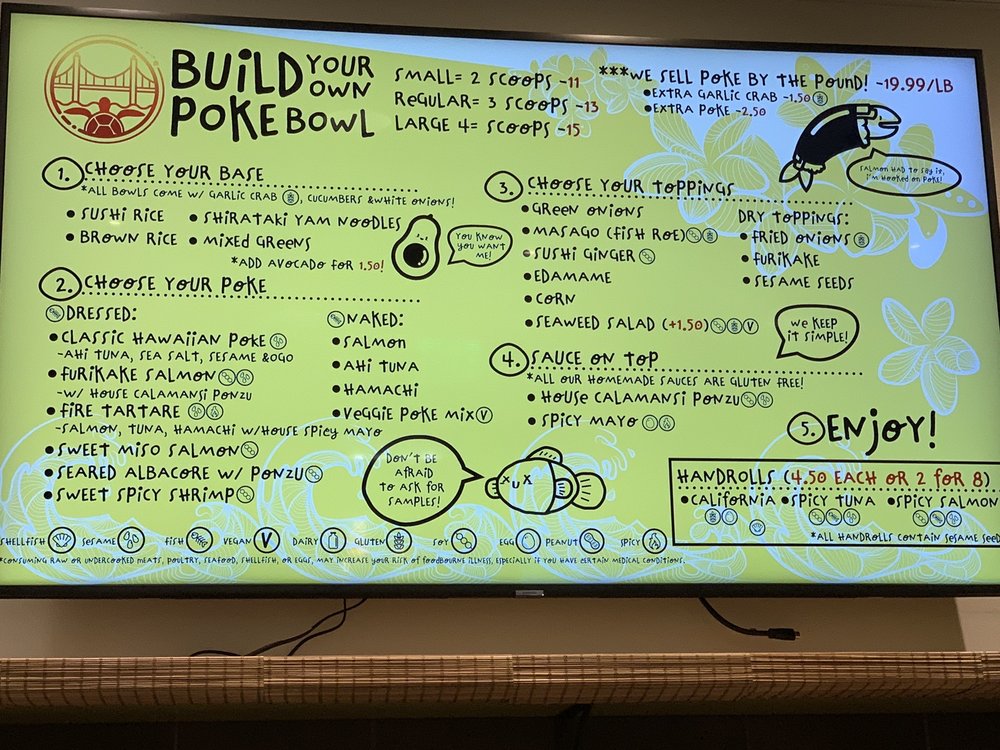 BUILD YOUR OWN POKE BOWL
SMALL= 2 SCOOPS -11
REGULAR= 3 SCOOPS -13
LARGE 4= SCOOPS -15
***WE SELL POKE BY THE POUND! -19.99/LB
•EXTRA GARLIC CRAB -1.50
•EXTRA POKE -2.50
SALMON HAD TO SAY IT,
I'M HOOKED ON POKE!
1. CHOOSE YOUR BASE
*ALL BOWLS COME W/ GARLIC CRAB, CUCUMBERS &WHITE ONIONS!
• SUSHI RICE
• SHIRATAKI YAM NOODLES
• BROWN RICE
• MIXED GREENS
*ADD AVOCADO FOR 1.50!
YOU KNOW
YOU WANT
ME!
2. CHOOSE YOUR POKE
DRESSED:
• CLASSIC HAWAIIAN POKE
-AHI TUNA, SEA SALT, SESAME &OGO
• FURIKAKE SALMON
-W/ HOUSE CALAMANSI PONZU
• FIRE TARTARE
-SALMON, TUNA, HAMACHI W/HOUSE SPICY MAYO
• SWEET MISO SALMON
• SEARED ALBACORE W/ PONZU
• SWEET SPICY SHRIMP
NAKED:
• SALMON
• AHI TUNA
• HAMACHI
• VEGGIE POKE MIX V
DON'T BE
AFRAID
TO ASK FOR
SAMPLES!
3. CHOOSE YOUR TOPPINGS
• GREEN ONIONS
• MASAGO (FISH ROE)
• SUSHI GINGER
• EDAMAME
• CORN
• SEAWEED SALAD (+1.50) V
DRY TOPPINGS:
• FRIED ONIONS
• FURIKAKE
• SESAME SEEDS
WE KEEP
IT SIMPLE!
4. SAUCE ON TOP
*ALL OUR HOMEMADE SAUCES ARE GLUTEN FREE!
• HOUSE CALAMANSI PONZU
• SPICY MAYO
5. ENJOY!
HANDROLLS (4.50 EACH OR 2 FOR 8)
•CALIFORNIA •SPICY TUNA •SPICY SALMON
*ALL HANDROLLS CONTAIN SESAME SEED
SHELLFISH SESAME FISH VEGAN V DAIRY GLUTEN SOY EGG PEANUT SPICY
*CONSUMING RAW OR UNDERCOOKED MEATS, POULTRY, SEAFOOD, SHELLFISH, OR EGGS, MAY INCREASE YOUR RISK OF FOODBOURNE ILLNESS, ESPECIALLY IF YOU HAVE CERTAIN MEDICAL CONDITIONS.